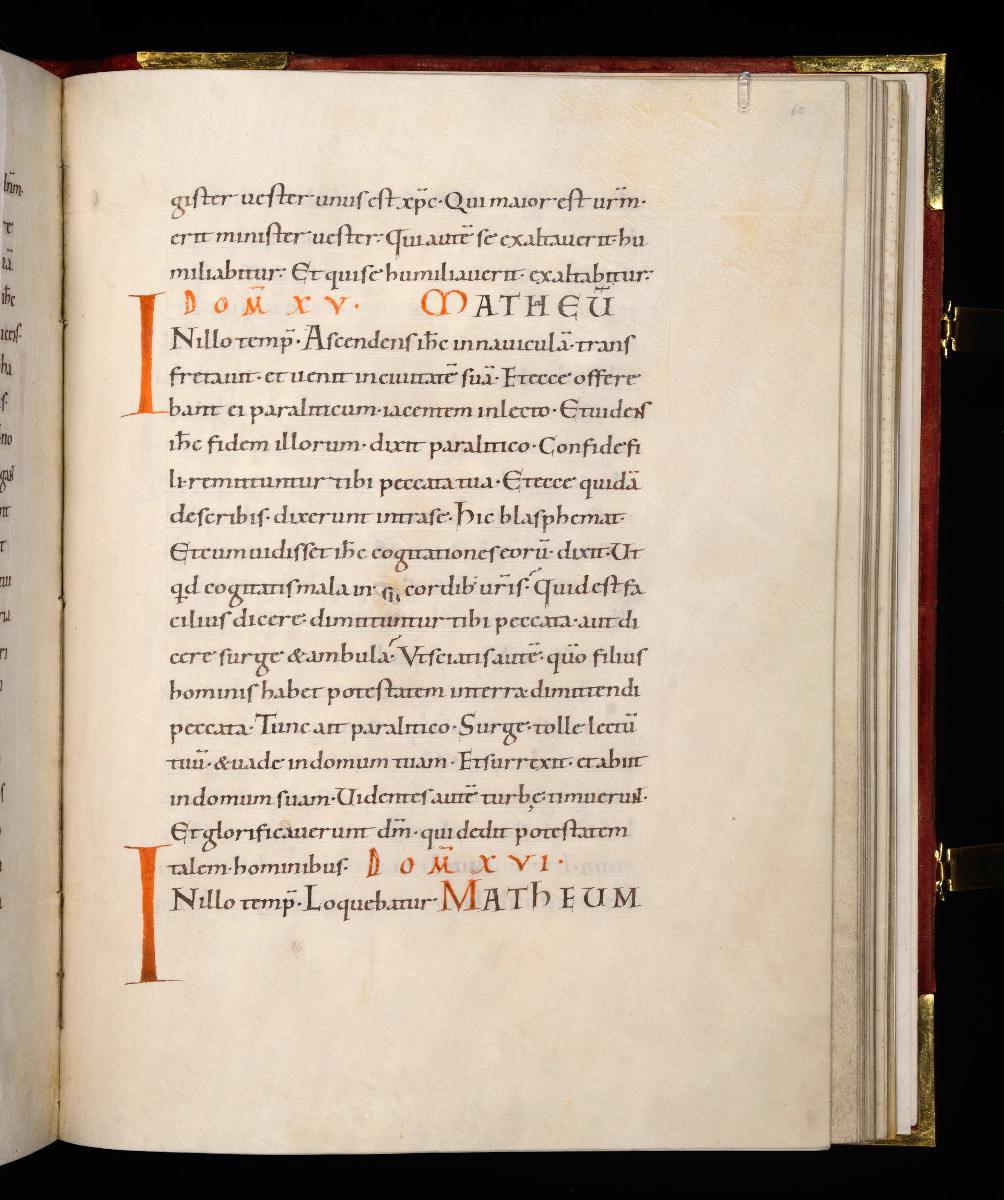 gister uester unus est xp̄c· Qui maior est ur̄m·
erit minister uester· Qui autē se exaltauerit· hu
miliabitur· Et qui se humiliauerit· exaltabitur·
DOM̄ XV. MATHEŪ
INillo temp̄· Ascendens ih̄c innauiculā· trans
fretauit· et uenit inciuitatē suā· Et ecce offere
bant ei paraliticum· iacentem inlecto· Et uidens
ih̄c fidem illorum· dixit paralitico· Confide fi
li· remittuntur tibi peccata tua· Et ecce quidā
de scribis· dixerunt intra se· hic blasphemat·
Et cum uidisset ih̄c cogitationes eorū· dixit· Ut
qd̄ cogitatis mala in cordib; ur̄is· Quid est fa
cilius dicere· dimittuntur tibi peccata· aut di
cere surge & ambula· Vt sciatis autē· quō filius
hominis habet potestatem interra· dimittendi
peccata· Tunc ait paralitico· Surge· tolle lectū
tuū· & uade indomum tuam· Et surrexit· et abiit
indomum suam· Uidentes autē turbę· timuerunt·
Et glorificauerunt dm̄· qui dedit potestatem
talem· hominibus· DOM̄ XVI·
INillo temp̄· Loquebatur· MAThEUM
60